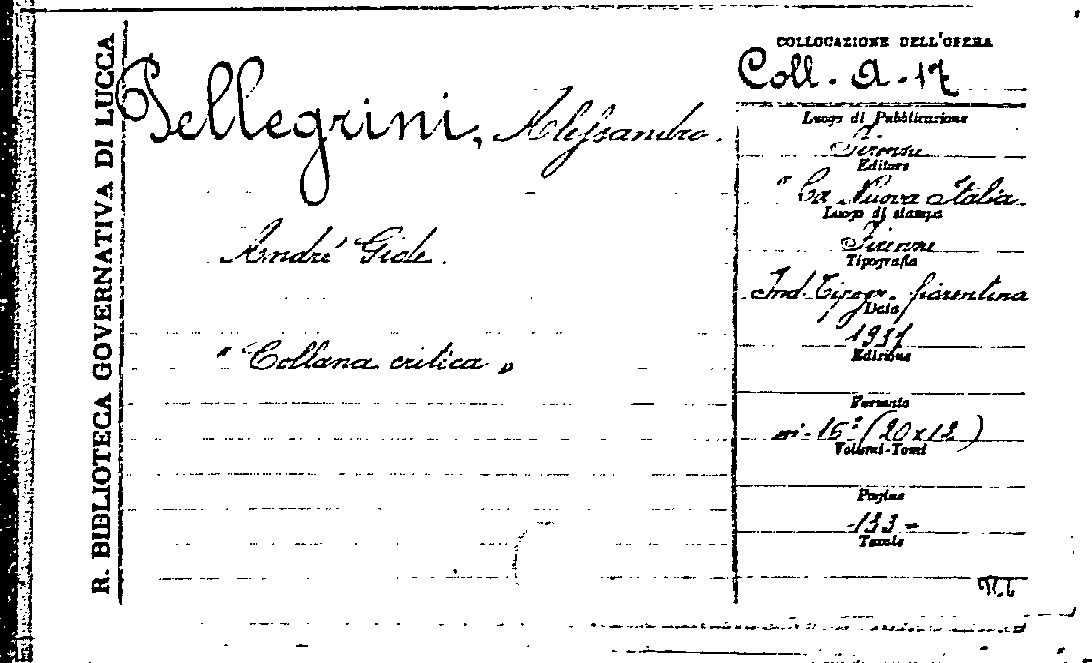 R. BIBLIOTECA GOVERNATIVA DI LUCCA
Pellegrini, Alessandro.
André Gide.
"Collana critica"
COLLOCAZIONE DELL'OPERA
Coll. A. 17
Luogo di Pubblicazione
Firenze
Editore
"La Nuova Italia
Luogo di stampa
Firenze
Tipografia
Ind. Tipogr. fiorentina
Data
1937
Edizione
Formato
in-16º (20x12)
Volumi-Tomi
Pagine
133
Tavole